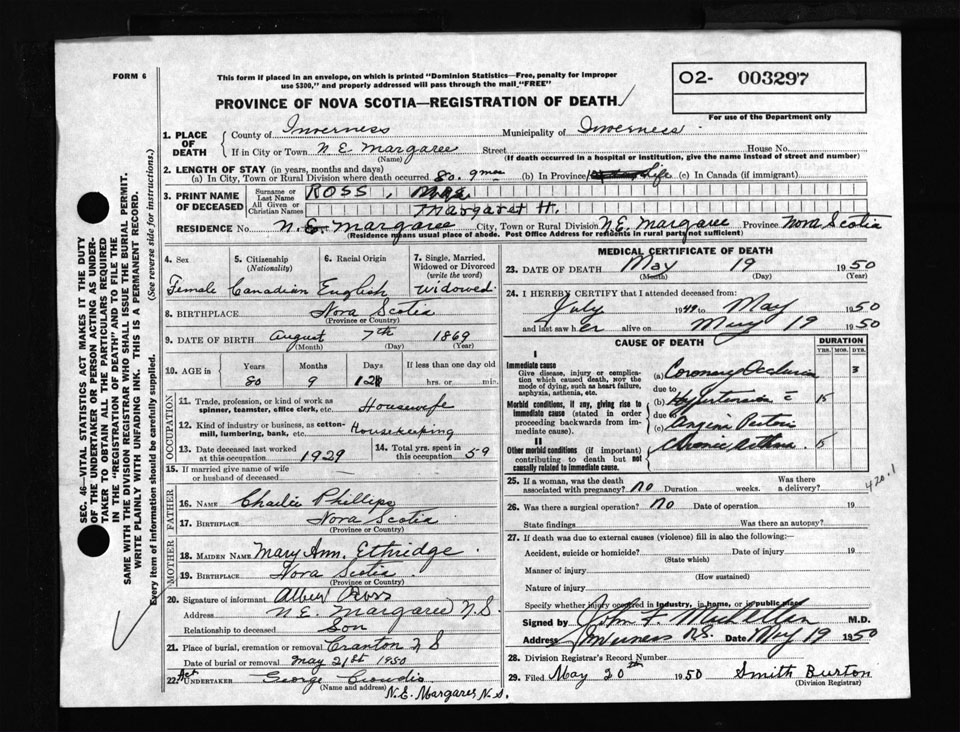 FORM 6
This form if placed in an envelope, on which is printed "Dominion Statistics—Free, penalty for improper
use $300," and properly addressed will pass through the mail "FREE"
O2- 003297
For use of the Department only
PROVINCE OF NOVA SCOTIA—REGISTRATION OF DEATH
1. PLACE OF DEATH County of Inverness Municipality of Inverness
If in City or Town N. E. Margaree Street House No.
(Name) (If death occurred in a hospital or institution, give the name instead of street and number)
2. LENGTH OF STAY (in years, months and days)
(a) In City, Town or Rural Division where death occurred 80. 9 mos (b) In Province Life (c) In Canada (if immigrant)
3. PRINT NAME OF DECEASED Surname or Last Name ROSS, Mrs.
All Given or Christian Names Margaret H.
RESIDENCE No. N. E. Margaree City, Town or Rural Division N.E. Margaree Province Nova Scotia
(Residence means usual place of abode. Post Office Address for residents in rural parts not sufficient)
4. Sex
Female
5. Citizenship
(Nationality)
Canadian
6. Racial Origin
English
7. Single, Married, Widowed or Divorced
(write the word)
Widowed
8. BIRTHPLACE Nova Scotia
(Province or Country)
9. DATE OF BIRTH August 7th 1869
(Month) (Day) (Year)
10. AGE in Years Months Days If less than one day old
80 9 12 hrs. or min.
OCCUPATION
11. Trade, profession, or kind of work as spinner, teamster, office clerk, etc. Housewife
12. Kind of industry or business, as cotton-mill, lumbering, bank, etc. Housekeeping
13. Date deceased last worked at this occupation 1929
14. Total yrs. spent in this occupation 59
15. If married give name of wife or husband of deceased
FATHER
16. NAME Charlie Phillips
17. BIRTHPLACE Nova Scotia
(Province or Country)
MOTHER
18. MAIDEN NAME Mary Ann. Ethridge
19. BIRTHPLACE Nova Scotia
(Province or Country)
20. Signature of informant Albert Ross
Address N. E. Margaree N.S.
Relationship to deceased Son
21. Place of burial, cremation or removal Cranton N S
Date of burial or removal May 21st 1950
22. Act UNDERTAKER George
(Name and address)
N.E. Margaree N.S.
MEDICAL CERTIFICATE OF DEATH
23. DATE OF DEATH May 19 1950
(Month) (Day) (Year)
24. I HEREBY CERTIFY that I attended deceased from:
July 1949 to May 1950
and last saw her alive on May 19 1950
CAUSE OF DEATH
DURATION
YRS. MOS. DYS.
I
Immediate cause
Give disease, injury or complication which caused death, nor the mode of dying, such as heart failure, asphyxia, asthenia, etc.
(a) Coronary Occlusion 3
due to
Morbid conditions, if any, giving rise to immediate cause (stated in order proceeding backwards from immediate cause).
(b) Hypertension 15
due to
(c) Angina Pectoris
II
Other morbid conditions (if important) contributing to death but not causally related to immediate cause.
Chronic Asthma
420.1
25. If a woman, was the death associated with pregnancy? NO Duration weeks. Was there a delivery?
26. Was there a surgical operation? NO Date of operation 19
State findings Was there an autopsy?
27. If death was due to external causes (violence) fill in also the following:—
Accident, suicide or homicide? Date of injury 19
(State which)
Manner of injury
(How sustained)
Nature of injury
Specify whether injury occurred in industry, in home, or in public place
Signed by John F. M.D.
Address Inverness N.S. Date May 19 1950
28. Division Registrar's Record Number
29. Filed May 20th 1950 Smith Burton
(Division Registrar)
SEC. 46—VITAL STATISTICS ACT MAKES IT THE DUTY
OF THE UNDERTAKER OR PERSON ACTING AS UNDER-
TAKER TO OBTAIN ALL THE PARTICULARS REQUIRED
IN THE "REGISTRATION OF DEATH" AND TO FILE THE
SAME WITH THE DIVISION REGISTRAR WHO SHALL ISSUE THE BURIAL PERMIT.
WRITE PLAINLY WITH UNFADING INK. THIS IS A PERMANENT RECORD.
Every item of information should be carefully supplied. (See reverse side for instructions.)